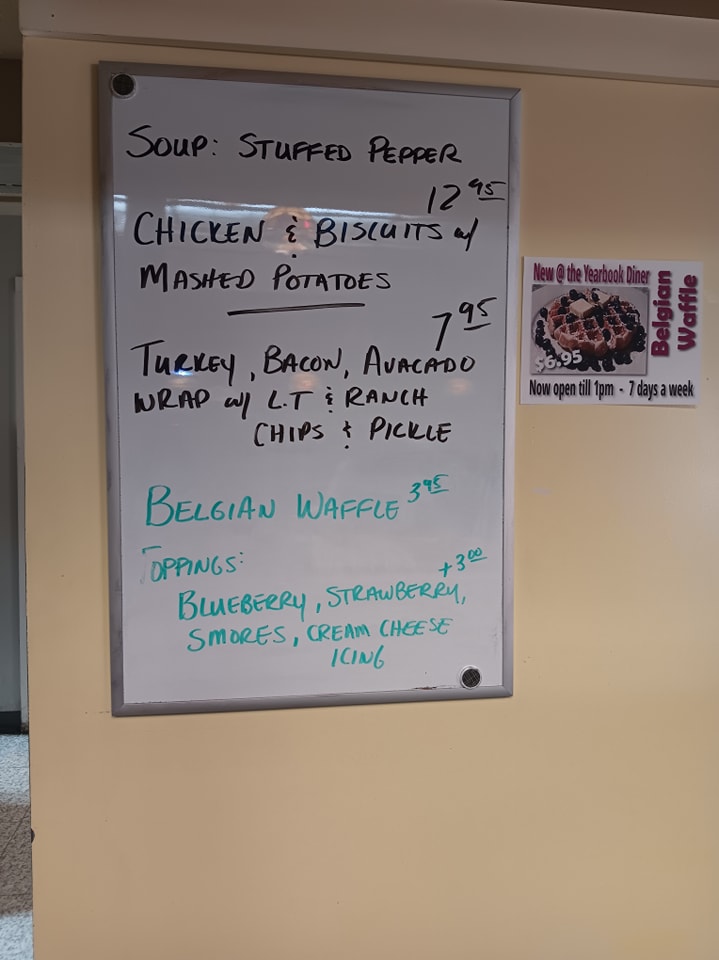 SOUP: STUFFED PEPPER
12 95
CHICKEN & BISCUITS w/
MASHED POTATOES
7 95
TURKEY, BACON, AVACADO
WRAP w/ L.T & RANCH
CHIPS & PICKLE
BELGIAN WAFFLE 3 95
TOPPINGS: +3 00
BLUEBERRY, STRAWBERRY,
SMORES, CREAM CHEESE
ICING
New @ the Yearbook Diner
Belgian
Waffle
$6.95
Now open till 1pm - 7 days a week